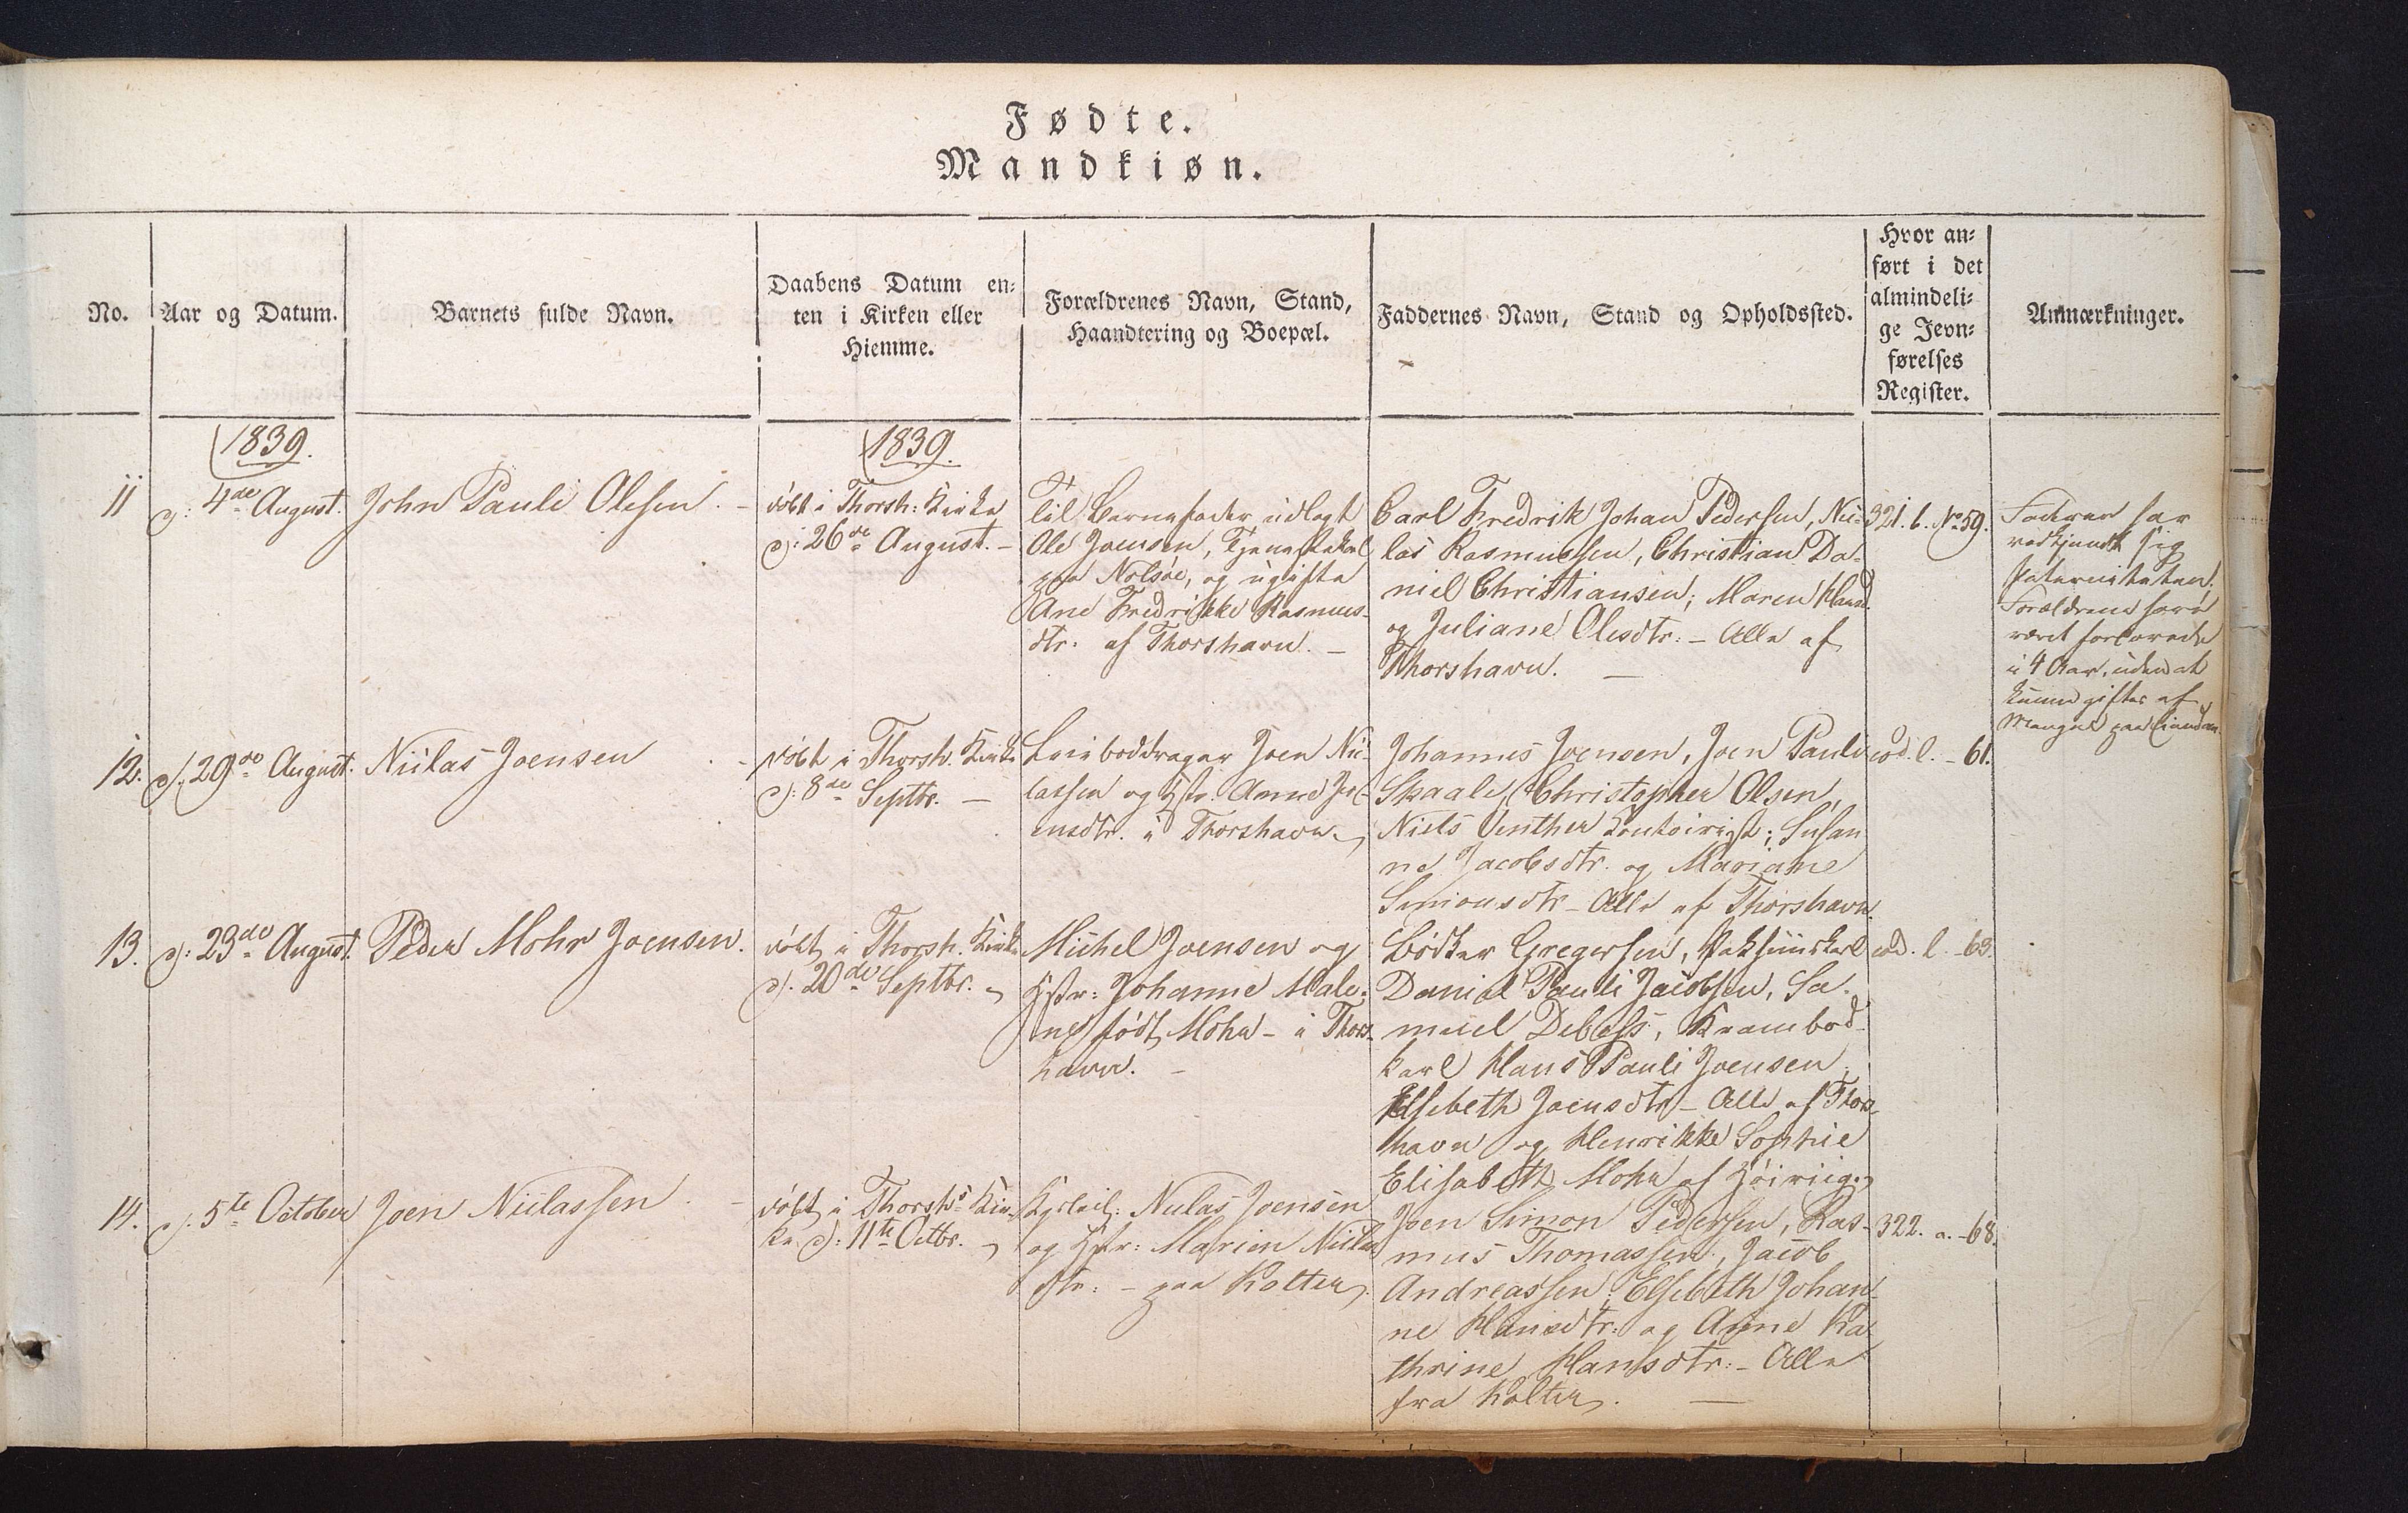 Fødte.
Mandkiøn.
No.
Aar og Datum.
Barnets fulde Navn.
Daabens Datum en=
ten i Kirken eller
Hiemme.
Forældrenes Navn, Stand,
Haandtering og Boepæl.
Faddernes Navn, Stand og Opholdssted.
Hvor an=
ført i det
almindeli=
ge Jevn=
førelses
Register.
Anmærkninger.
1839.
1839.
11
d: 4de August.
John Pauli Olesen. -
døbt i Thorsh: Kirke
d: 26de August. -
Til Barnefader udlagt
Ole Joensen, Tjenestekarl
paa Nolsöe, og ugifte
Ane Fredrikke Rasmus-
dtr. af Thorshavn. -
Carl Fredrik Johan Pedersen, Niü-
las Rasmussen, Christian Da-
niel Christiansen; Maren Hansd.
og Juliane Olesdtr. - Alle af
Thorshavn. -
321. b. No 59.
Faderen har
vedkjendt sig
Paterniteten.
Forældrene have
været forlovede
i 4 Aar, uden at
kunne giftes af
Mangel paa
12.
d. 29de August.
Niülas Joensen
døbt i Thorsh. Kirke
d: 8de Septbr. -
Joen Niü-
lassen og Hstr. Anne Jo-
ensdtr. i Thorshavn.
Johannes Joensen, Joen Pauli
Skaale, Christopher Olsen,
Niels Venther Contoirist; Susan
ne Jacobsdtr. og Mariane
Simonsdtr - Alle af Thorshavn.
eod. l. - 61.
13.
d: 23de August.
Peder Mohr Joensen.
døbt i Thorsh. Kirke
d. 20de Septbr.
Michel Joensen og
Hstr: Johanne Male-
ne født Mohr - i Thors-
havn. -
Bødker Gregersen, Pakhuuskarl
Daniel Pauli Jacobsen, Sa-
muel Debess, Krambod-
karl Hans Pauli Joensen,
Elsebeth Joensdtr - Alle af Thors-
havn og Henrikke Sophie
Elisabeth Mohr af Höiviig.
eod. l. - 63.
14.
d. 5te October
Joen Niülassen. -
døbt i Thorshs Kir-
ke d: 11te Octbr.
Niülas Joensen
og Hstr: Marien Niülas
dtr: - paa Kolter.
Joen Simon Pedersen, Ras-
mus Thomassen, Jacob
Andreassen; Elsebeth Johan-
ne Hansdtr: og Anne Ka-
thrine Hansdtr: - Alle
fra Kolter. -
322. a. - 68.